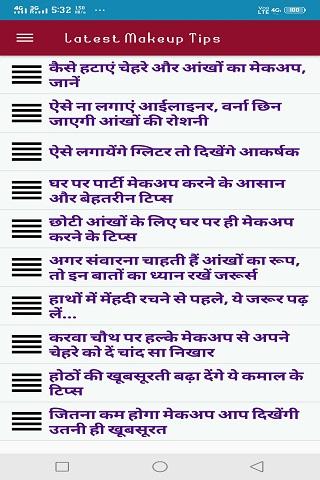 4G 3G 5:32 ...
VoLTE 4G 100
Latest Makeup Tips
कैसे हटाएं चेहरे और आंखों का मेकअप,
जानें
ऐसे ना लगाएं आईलाइनर, वर्ना छिन
जाएगी आंखों की रोशनी
ऐसे लगायेंगे ग्लिटर तो दिखेंगे आकर्षक
घर पर पार्टी मेकअप करने के आसान
और बेहतरीन टिप्स
छोटी आंखों के लिए घर पर ही मेकअप
करने के टिप्स
अगर संवारना चाहती हैं आंखों का रूप,
तो इन बातों का ध्यान रखें जरूर्स
हाथों में मेंहदी रचने से पहले, ये जरूर पढ़
लें...
करवा चौथ पर हल्के मेकअप से अपने
चेहरे को दें चांद सा निखार
होठों की खूबसूरती बढ़ा देंगे ये कमाल के
टिप्स
जितना कम होगा मेकअप आप दिखेंगी
उतनी ही खूबसूरत